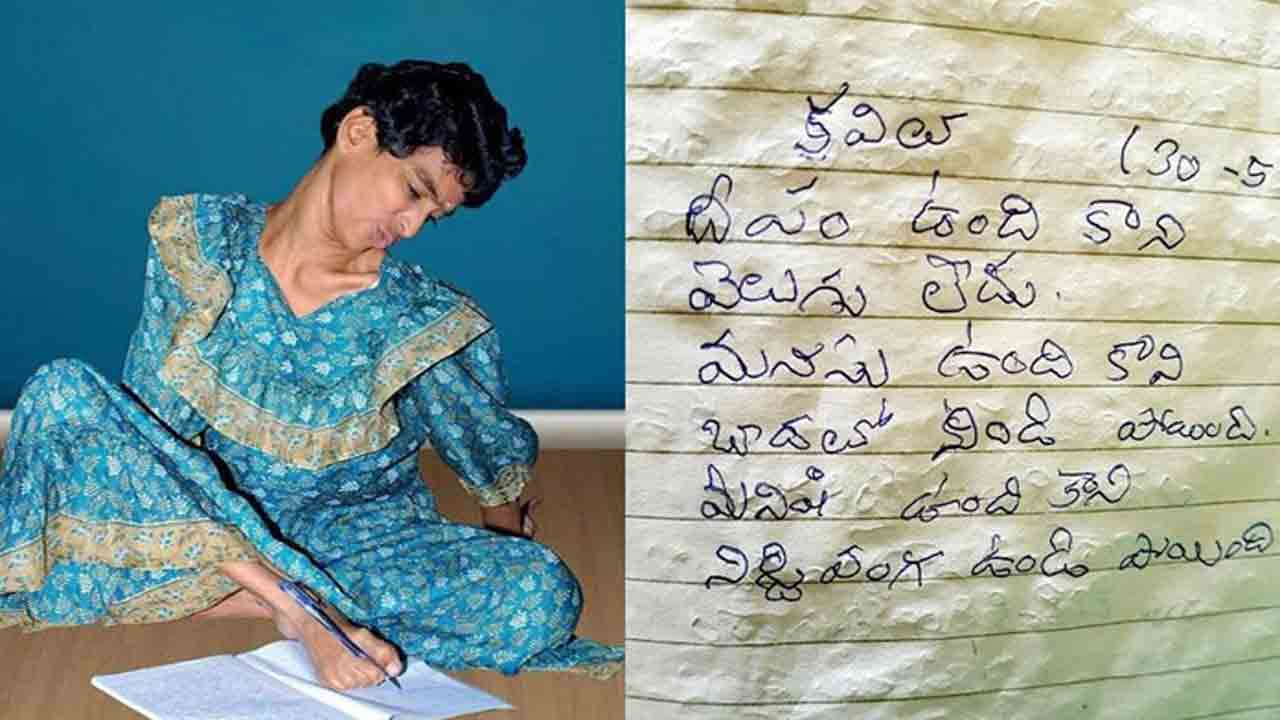 కవిలు
(30-5
దీపం ఉంది కాని
వెలుగు లేదు.
మనసు ఉంది కాని
బాదలో నిండి పోయింది.
మనిషి ఉంది కాని
నిర్జివంగ ఉండి పోయింది